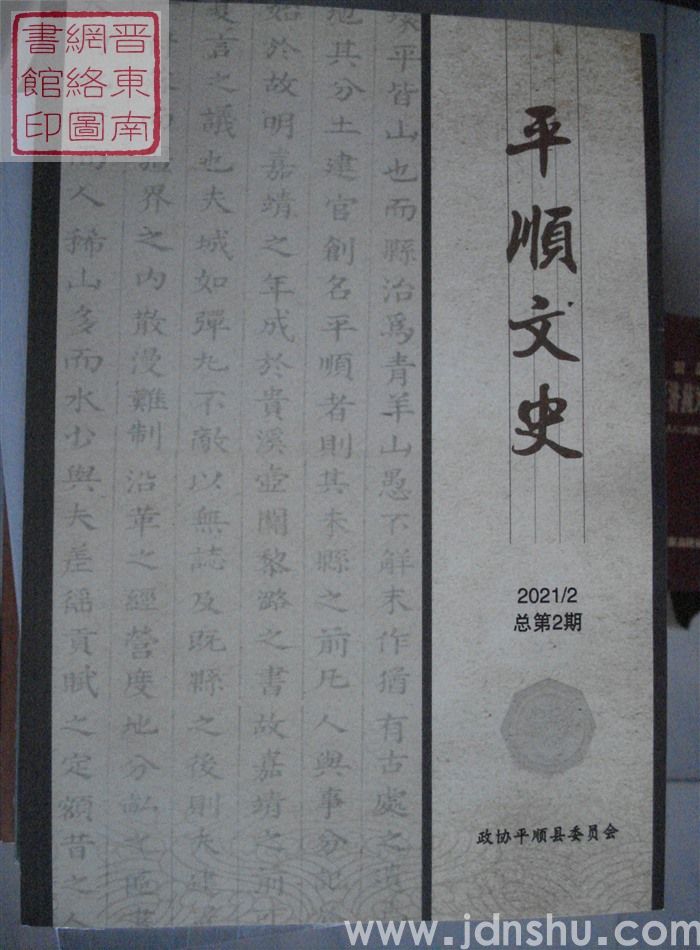 晋東南
網絡圖
書館印
平順文史
2021/2
总第2期
政协平顺县委员会
平皆山也而縣治爲青羊山愚不解末作猶有古處之
其分土建官創名平順者則其未縣之前凡人與事分記
始於故明嘉靖之年成於貴溪壺關黎潞之書故嘉靖之前
言之議也夫城如彈丸不敵以無誌及既縣之後則大建
界之内散漫難制沿革之經營度地分畝之區
人稀山多而水少與夫差徭貢賦之定額昔之人
www.jdnshu.com